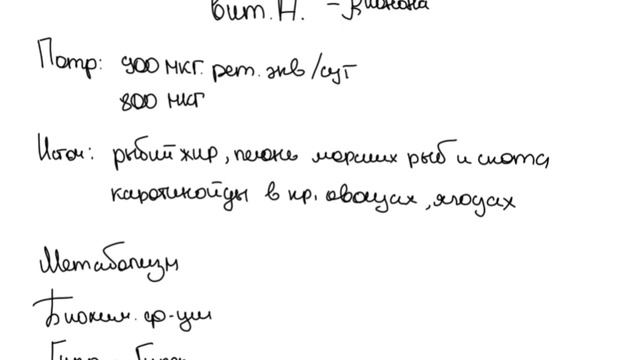 Вит. Н. -
Потр: 900 мкг. рет. экв/сут
800 мкг
Источ: рыбий жир, печень морских рыб и скота
каротиноиды в кр. овощах, ягодах
Метаболизм
Биохим. ф-ции